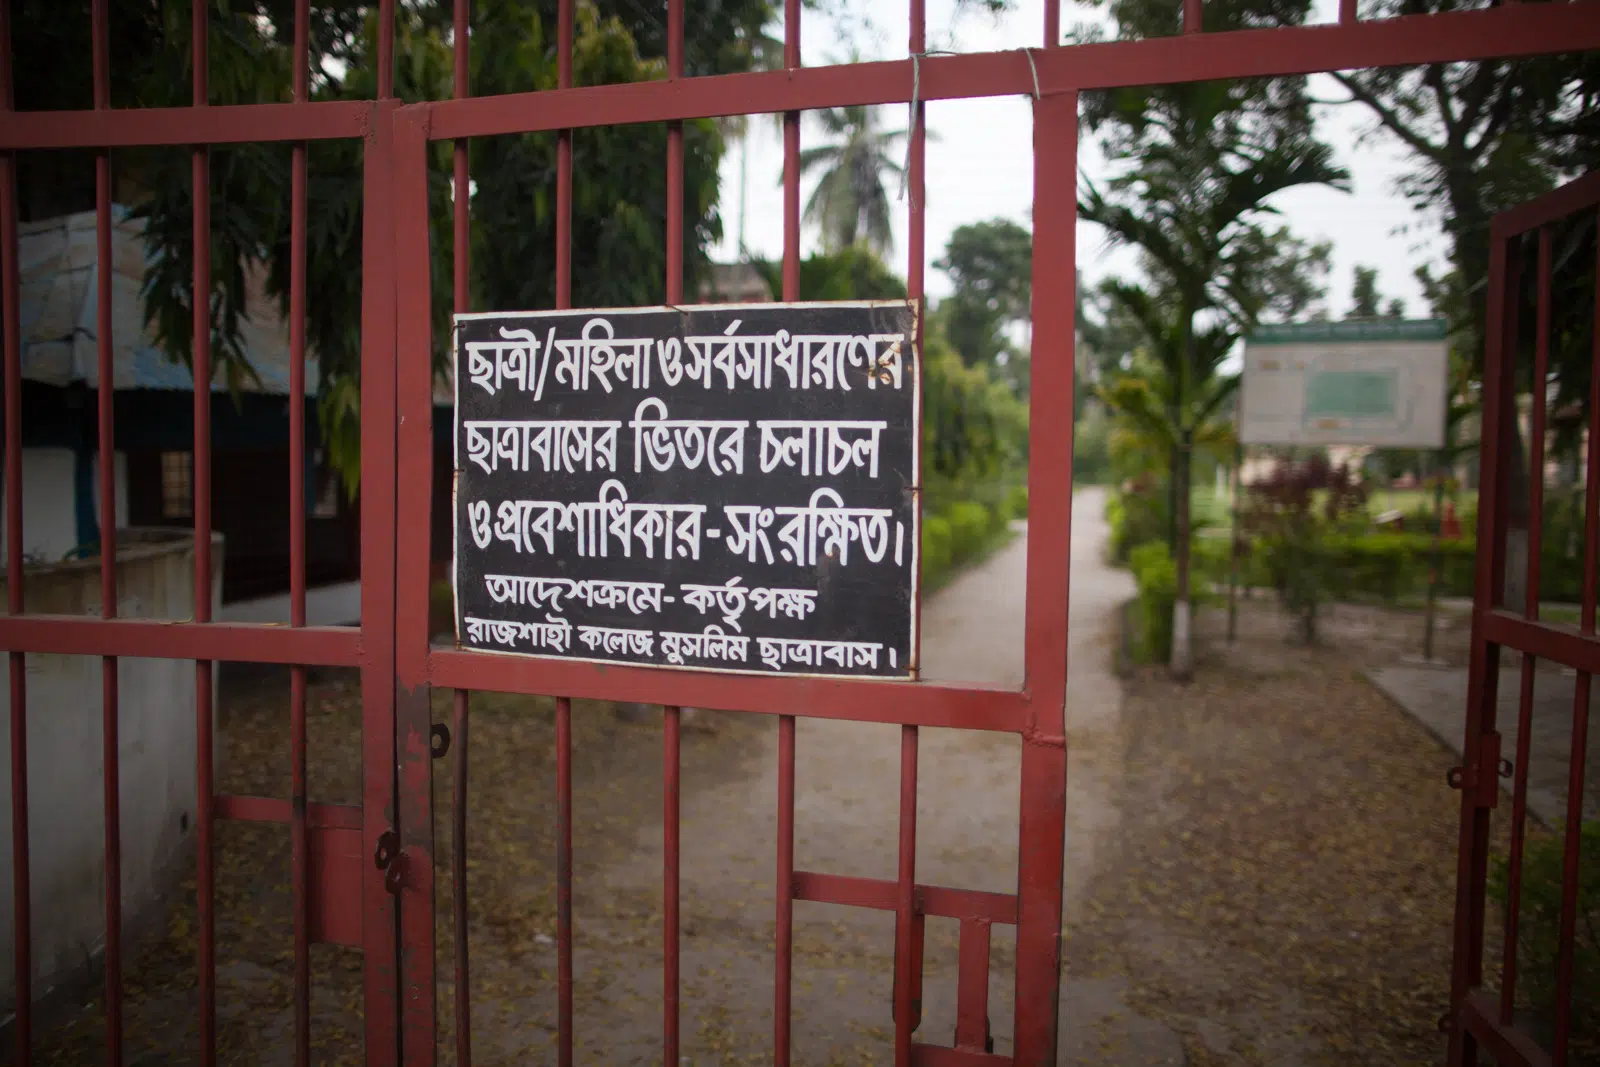 ছাত্রী/মহিলা ও সর্বসাধারণের
ছাত্রাবাসের ভিতরে চলাচল
ও প্রবেশাধিকার - সংরক্ষিত।
আদেশক্রমে - কর্তৃপক্ষ
রাজশাহী কলেজ মুসলিম ছাত্রাবাস।